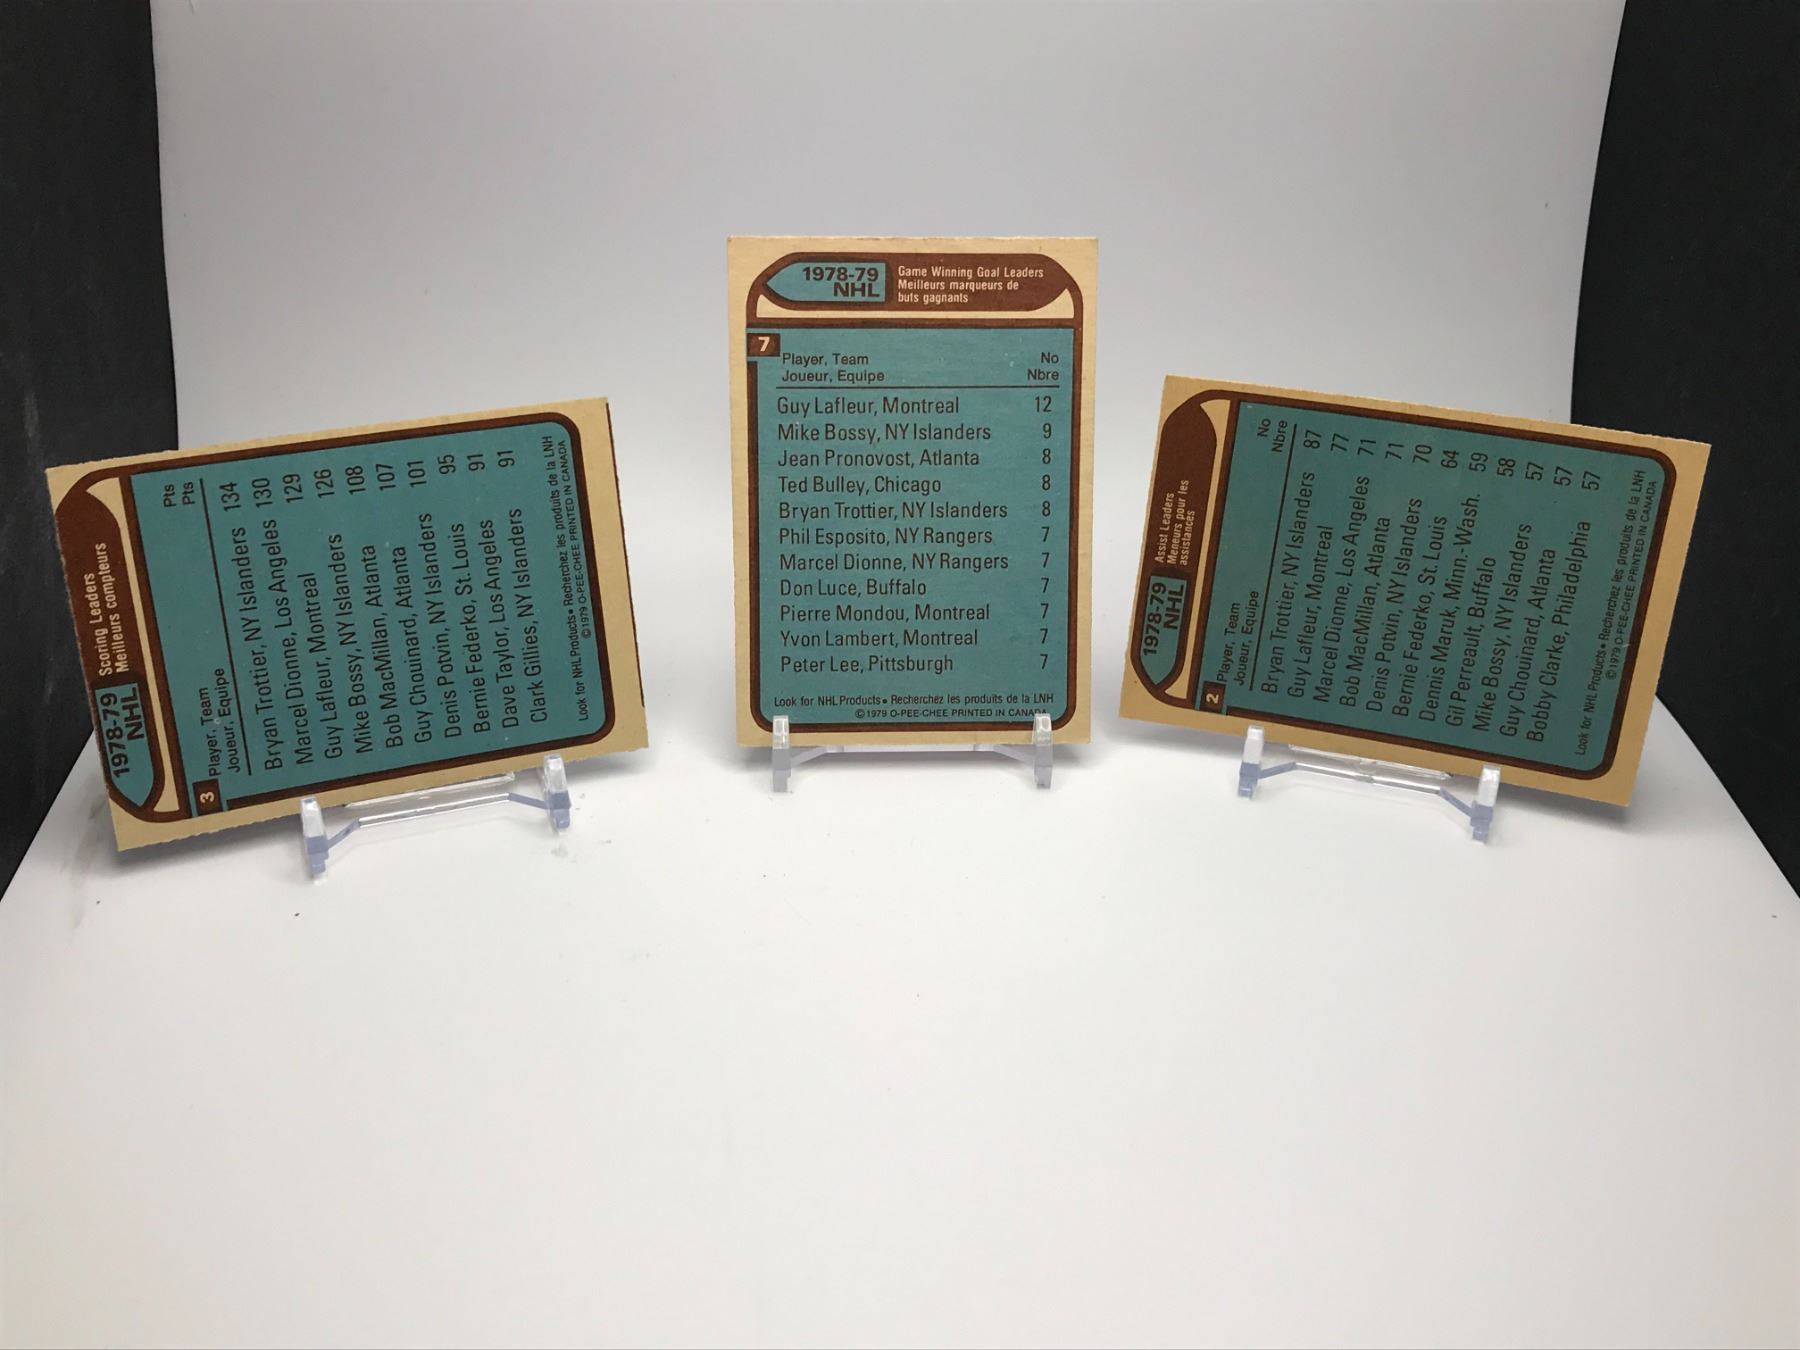 1978-79
NHL
Scoring Leaders
Meilleurs compteurs
3
Player, Team Pts
Joueur, Equipe Pts
Bryan Trottier, NY Islanders 134
Marcel Dionne, Los Angeles 130
Guy Lafleur, Montreal 129
Mike Bossy, NY Islanders 126
Bob MacMillan, Atlanta 108
Guy Chouinard, Atlanta 107
Denis Potvin, NY Islanders 101
Bernie Federko, St. Louis 95
Dave Taylor, Los Angeles 91
Clark Gillies, NY Islanders 91
Look for NHL Products • Recherchez les produits de la LNH
© 1979 O-PEE-CHEE PRINTED IN CANADA
1978-79
NHL
Game Winning Goal Leaders
Meilleurs marqueurs de
buts gagnants
7
Player, Team No
Joueur, Equipe Nbre
Guy Lafleur, Montreal 12
Mike Bossy, NY Islanders 9
Jean Pronovost, Atlanta 8
Ted Bulley, Chicago 8
Bryan Trottier, NY Islanders 8
Phil Esposito, NY Rangers 7
Marcel Dionne, NY Rangers 7
Don Luce, Buffalo 7
Pierre Mondou, Montreal 7
Yvon Lambert, Montreal 7
Peter Lee, Pittsburgh 7
Look for NHL Products • Recherchez les produits de la LNH
© 1979 O-PEE-CHEE PRINTED IN CANADA
1978-79
NHL
Assist Leaders
Meneurs pour les
assistances
2
Player, Team No
Joueur, Equipe Nbre
Bryan Trottier, NY Islanders 87
Guy Lafleur, Montreal 77
Marcel Dionne, Los Angeles 71
Bob MacMillan, Atlanta 71
Denis Potvin, NY Islanders 70
Bernie Federko, St. Louis 64
Dennis Maruk, Minn.-Wash. 59
Gil Perreault, Buffalo 58
Mike Bossy, NY Islanders 57
Guy Chouinard, Atlanta 57
Bobby Clarke, Philadelphia 57
Look for NHL Products • Recherchez les produits de la LNH
© 1979 O-PEE-CHEE PRINTED IN CANADA